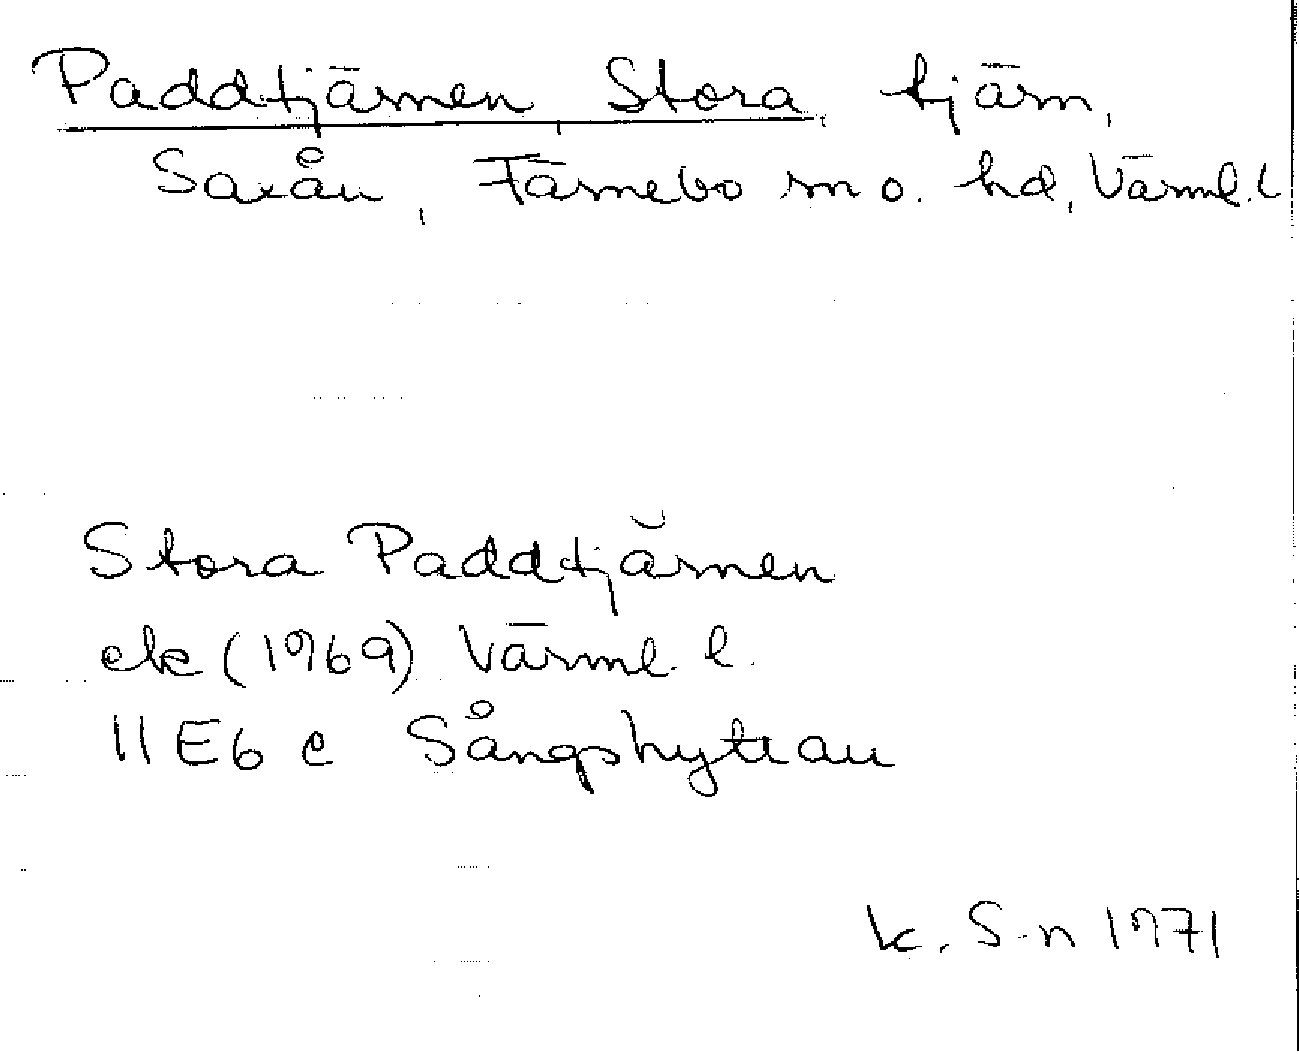 Paddtjärnen, Stora, tjärn,
Saxån, Färnebo sn o. hd, Värml. l
Stora Paddtjärnen
ek (1969) Värml. l.
11E6c Sångshyttan
K. S-n 1971